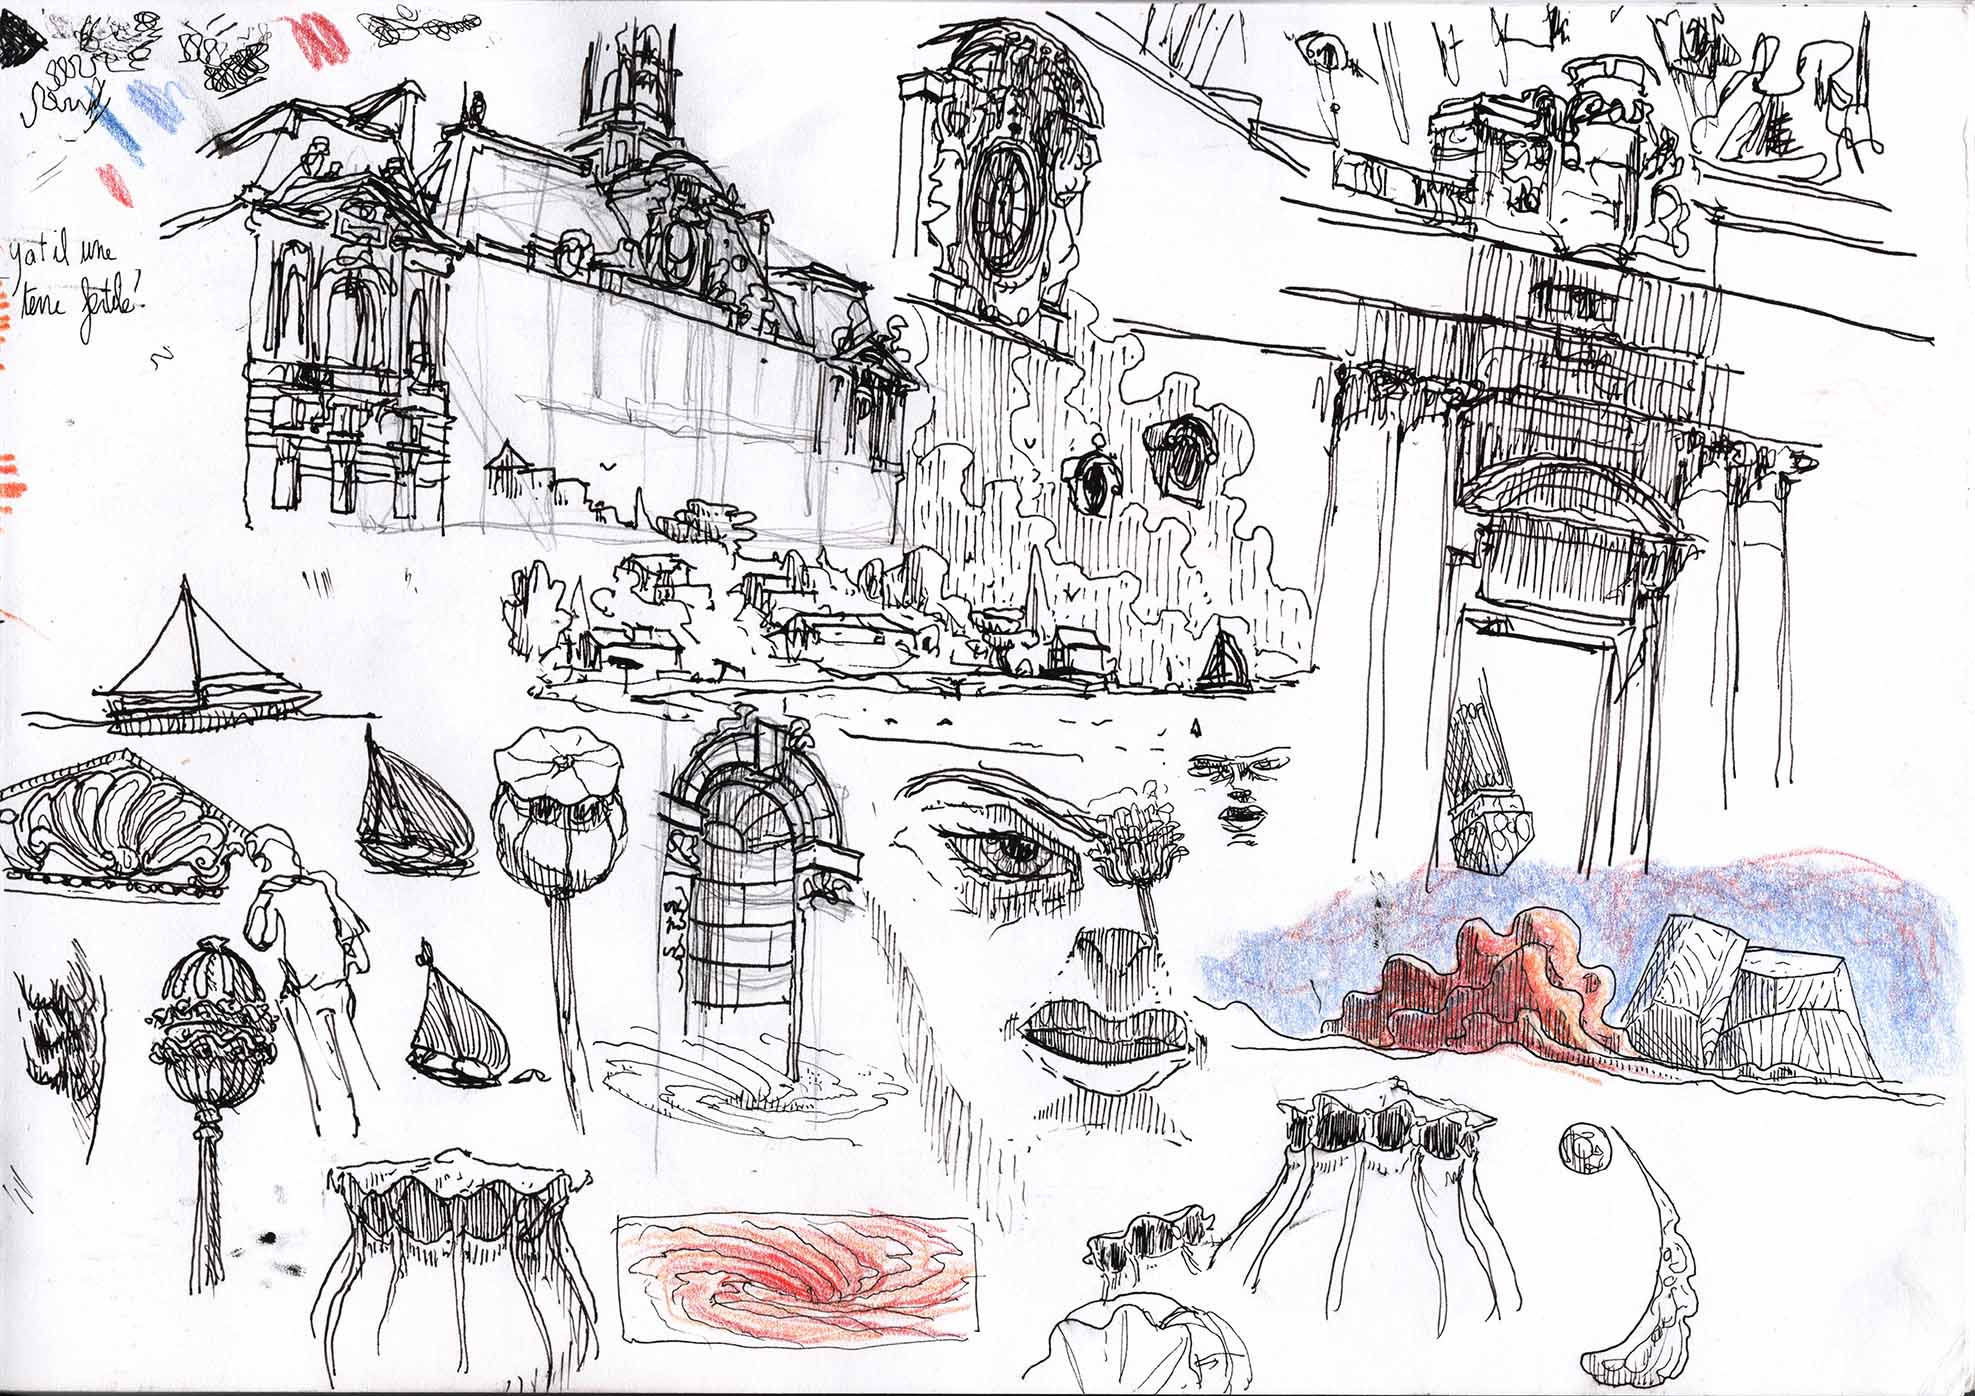 y a t il une
terre fertile?